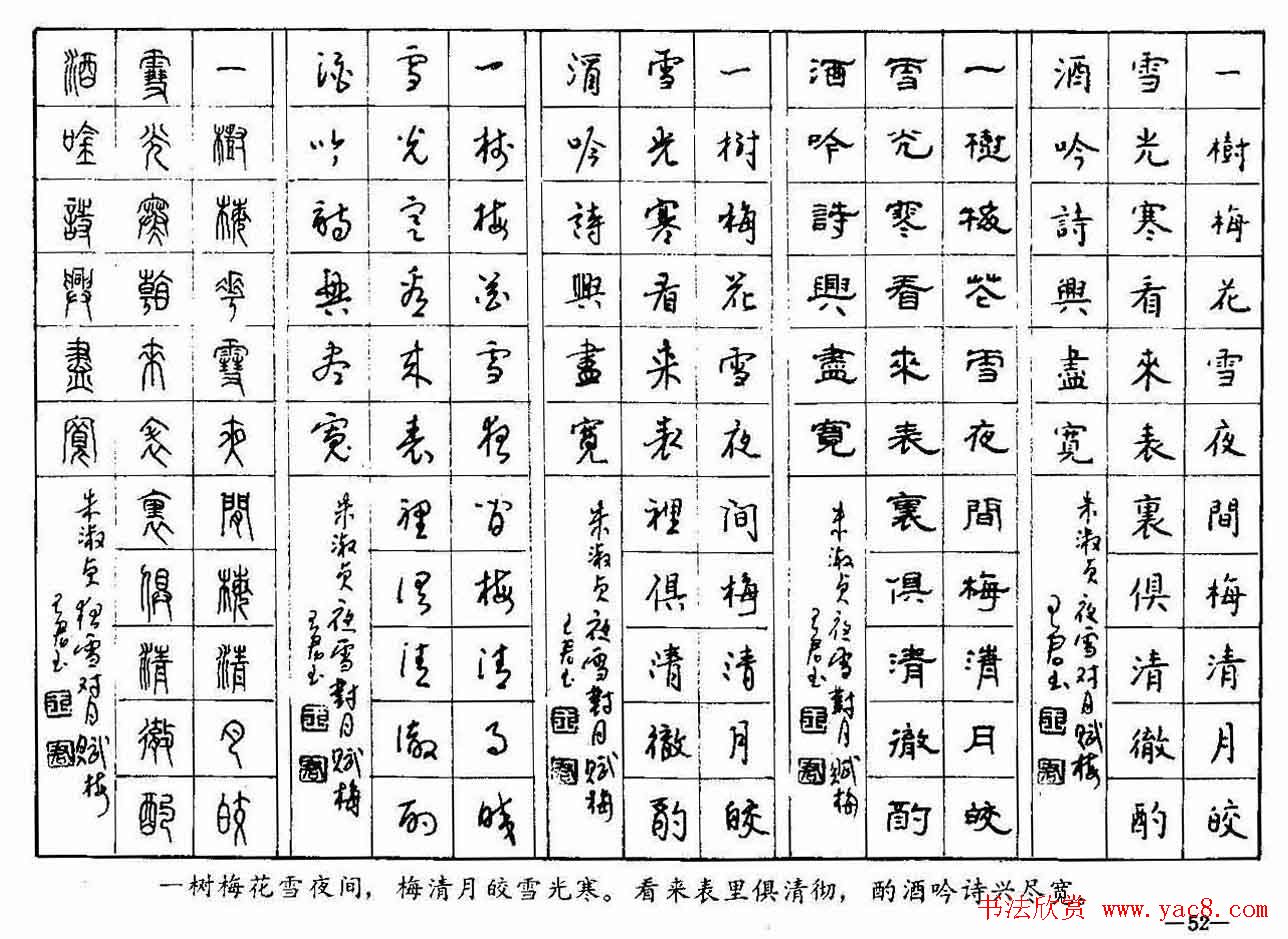 一樹梅花雪夜間梅清月皎
雪光寒看來表裏俱清徹酌
酒吟詩興盡寬
朱淑貞夜雪对月賦梅
一樹梅花雪夜間梅清月皎
雪光寒看來表裏俱清徹酌
酒吟詩興盡寬
朱淑貞夜雪對月賦梅
一樹梅花雪夜间梅清月皎
雪光寒看来表裡俱清徹酌
酒吟詩興盡寬
朱淑貞夜雪對月賦梅
一樹梅花雪夜間梅清月皎
雪光寒看来表裡俱清徹酌
酒吟詩興尽寬
朱淑貞夜雪對月賦梅
一樹梅花雪夜間梅清月皎
雪光寒看來表裏俱清徹酌
酒唫詩興盡寬
朱淑貞夜雪对月賦梅
一树梅花雪夜间，梅清月皎雪光寒。看来表里俱清彻，酌酒吟诗兴尽宽。
书法欣赏 www.yac8.com
—52—